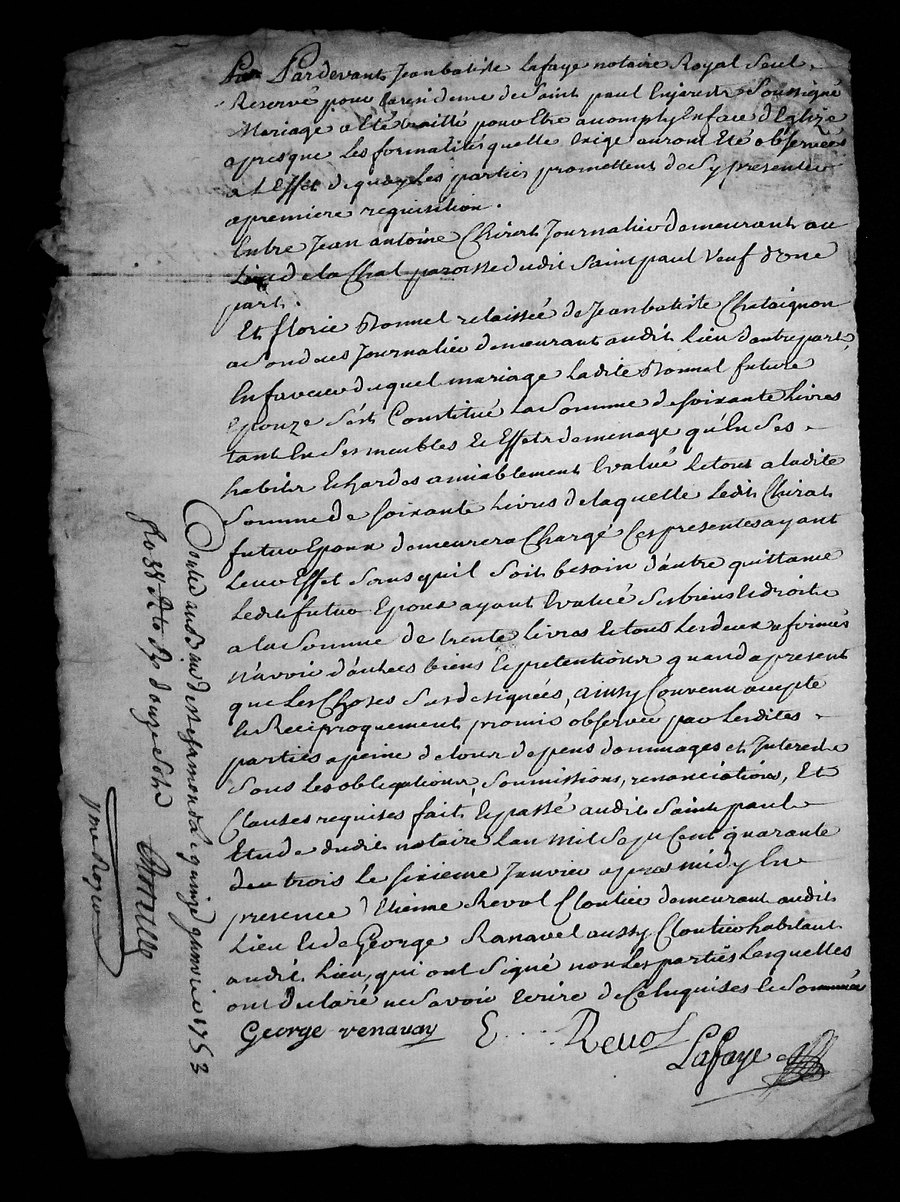 Pardevant Jeanbatiste Lafaye notaire Royal Seul
Reservé pour laresidence de Saint paul Enjarest Soussigné
Mariage a Eté traitté pour Etre acomply Enface d'Eglize
apresque Les formalités quelle Exige auront Eté observées
a L'Effet dequoy Les parties promettent de Sy presenter
apremiere requisition.
Entre Jean antoine Chirat Journalier demeurant au
Lieu de la Chal paroisse dudit Saint paul veuf d'une
part.
Et florie Bonnel relaissée de Jeanbatiste Chataignon
Journalier demeurant audit Lieu dautre part,
Enfaveur duquel mariage Ladite Bonnel future
Epouze s'est Constitué La Somme de Soixante Livres
tant En Ses meubles Et Effets demenage qu'En Ses
habits Et hardes amiablement Evalué Letout a ladite
Somme de Soixante Livres de laquelle Ledit Chirat
futur Epoux demeurera Chargé Ces presentes ayant
Leur Effet Sans quil Soit besoin d'autre quittance
Ledit futur Epoux ayant Evalué Ses biens Et droits
a la Somme de trente Livres Et tous Les deux afirmés
n'avoir d'autres biens Et pretentions quand apresent
que Les Choses Susdesignées, ainsy Convenu accepté
Et Reciproquement promis observer par Lesdites
parties apeine de tous depens dommages et Interests
Sous Les obligations, Soumissions, renonciations, Et
Clauses requises fait Et passé audit Saint paul
Etude dudit notaire Lan Mil Sept Cent quarante
trois le sixieme Janvier apres midy En
presence d'Etienne Revol Cloutier demeurant audit
Lieu Et de George Ranavel aussy Cloutier habitant
audit Lieu, qui ont Signé non Les parties Lesquelles
ont declaré ne Savoir Ecrire de Ce Enquises Et Sommées
George venavay E.... Revol
Lafaye
Controlé audit quinze janvier 1753
Reçu douze sols